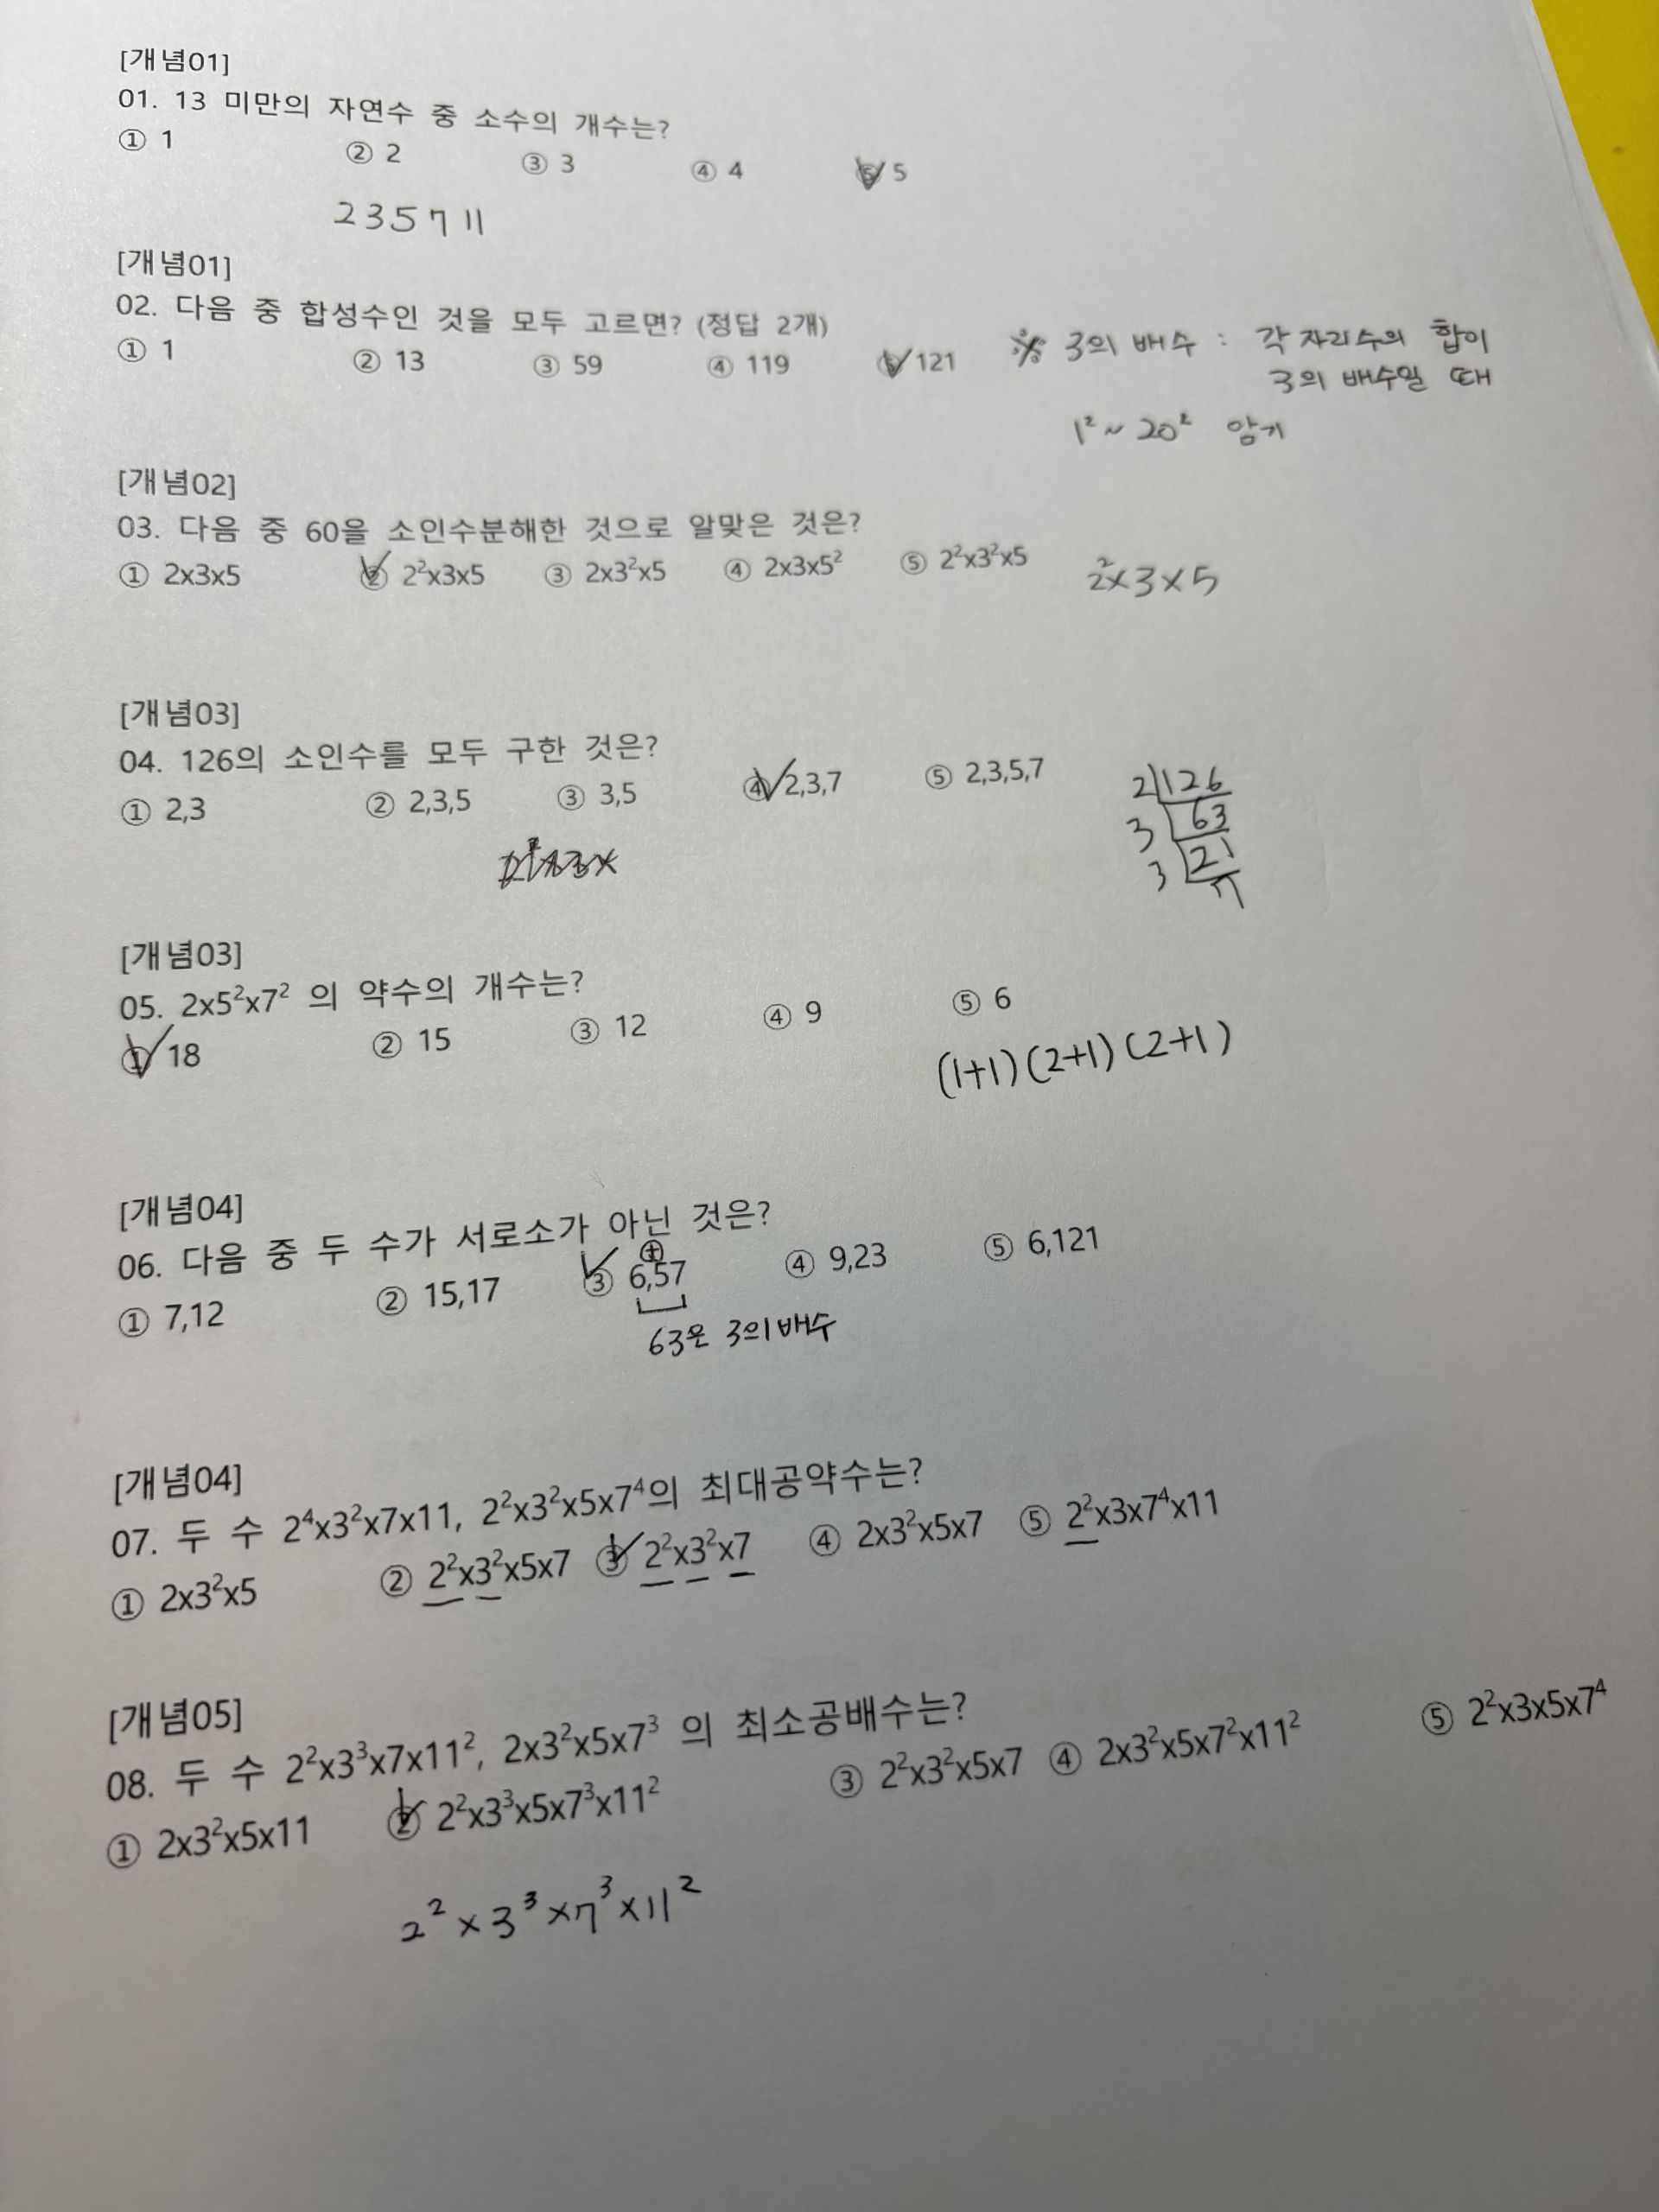 [개념01]
01. 13 미만의 자연수 중 소수의 개수는?
① 1 ② 2 ③ 3 ④ 4 ⑤ 5
2 3 5 7 11
[개념01]
02. 다음 중 합성수인 것을 모두 고르면? (정답 2개)
① 1 ② 13 ③ 59 ④ 119 ⑤ 121
※ 3의 배수 : 각 자리수의 합이
3의 배수일 때
1² ~ 20² 암기
[개념02]
03. 다음 중 60을 소인수분해한 것으로 알맞은 것은?
① 2x3x5 ② 2²x3x5 ③ 2x3²x5 ④ 2x3x5² ⑤ 2²x3²x5
2²×3×5
[개념03]
04. 126의 소인수를 모두 구한 것은?
① 2,3 ② 2,3,5 ③ 3,5 ④ 2,3,7 ⑤ 2,3,5,7
2 126
3 63
3 21
7
[개념03]
05. 2x5²x7² 의 약수의 개수는?
① 18 ② 15 ③ 12 ④ 9 ⑤ 6
(1+1)(2+1)(2+1)
[개념04]
06. 다음 중 두 수가 서로소가 아닌 것은?
+
① 7,12 ② 15,17 ③ 6,57 ④ 9,23 ⑤ 6,121
63은 3의 배수
[개념04]
07. 두 수 2⁴x3²x7x11, 2²x3²x5x7⁴의 최대공약수는?
① 2x3²x5 ② 2²x3²x5x7 ③ 2²x3²x7 ④ 2x3²x5x7 ⑤ 2²x3x7⁴x11
[개념05]
08. 두 수 2²x3³x7x11², 2x3²x5x7³ 의 최소공배수는?
① 2x3²x5x11 ② 2²x3³x5x7³x11² ③ 2²x3²x5x7 ④ 2x3²x5x7²x11² ⑤ 2²x3x5x7⁴
2² × 3³ × 7³ × 11²